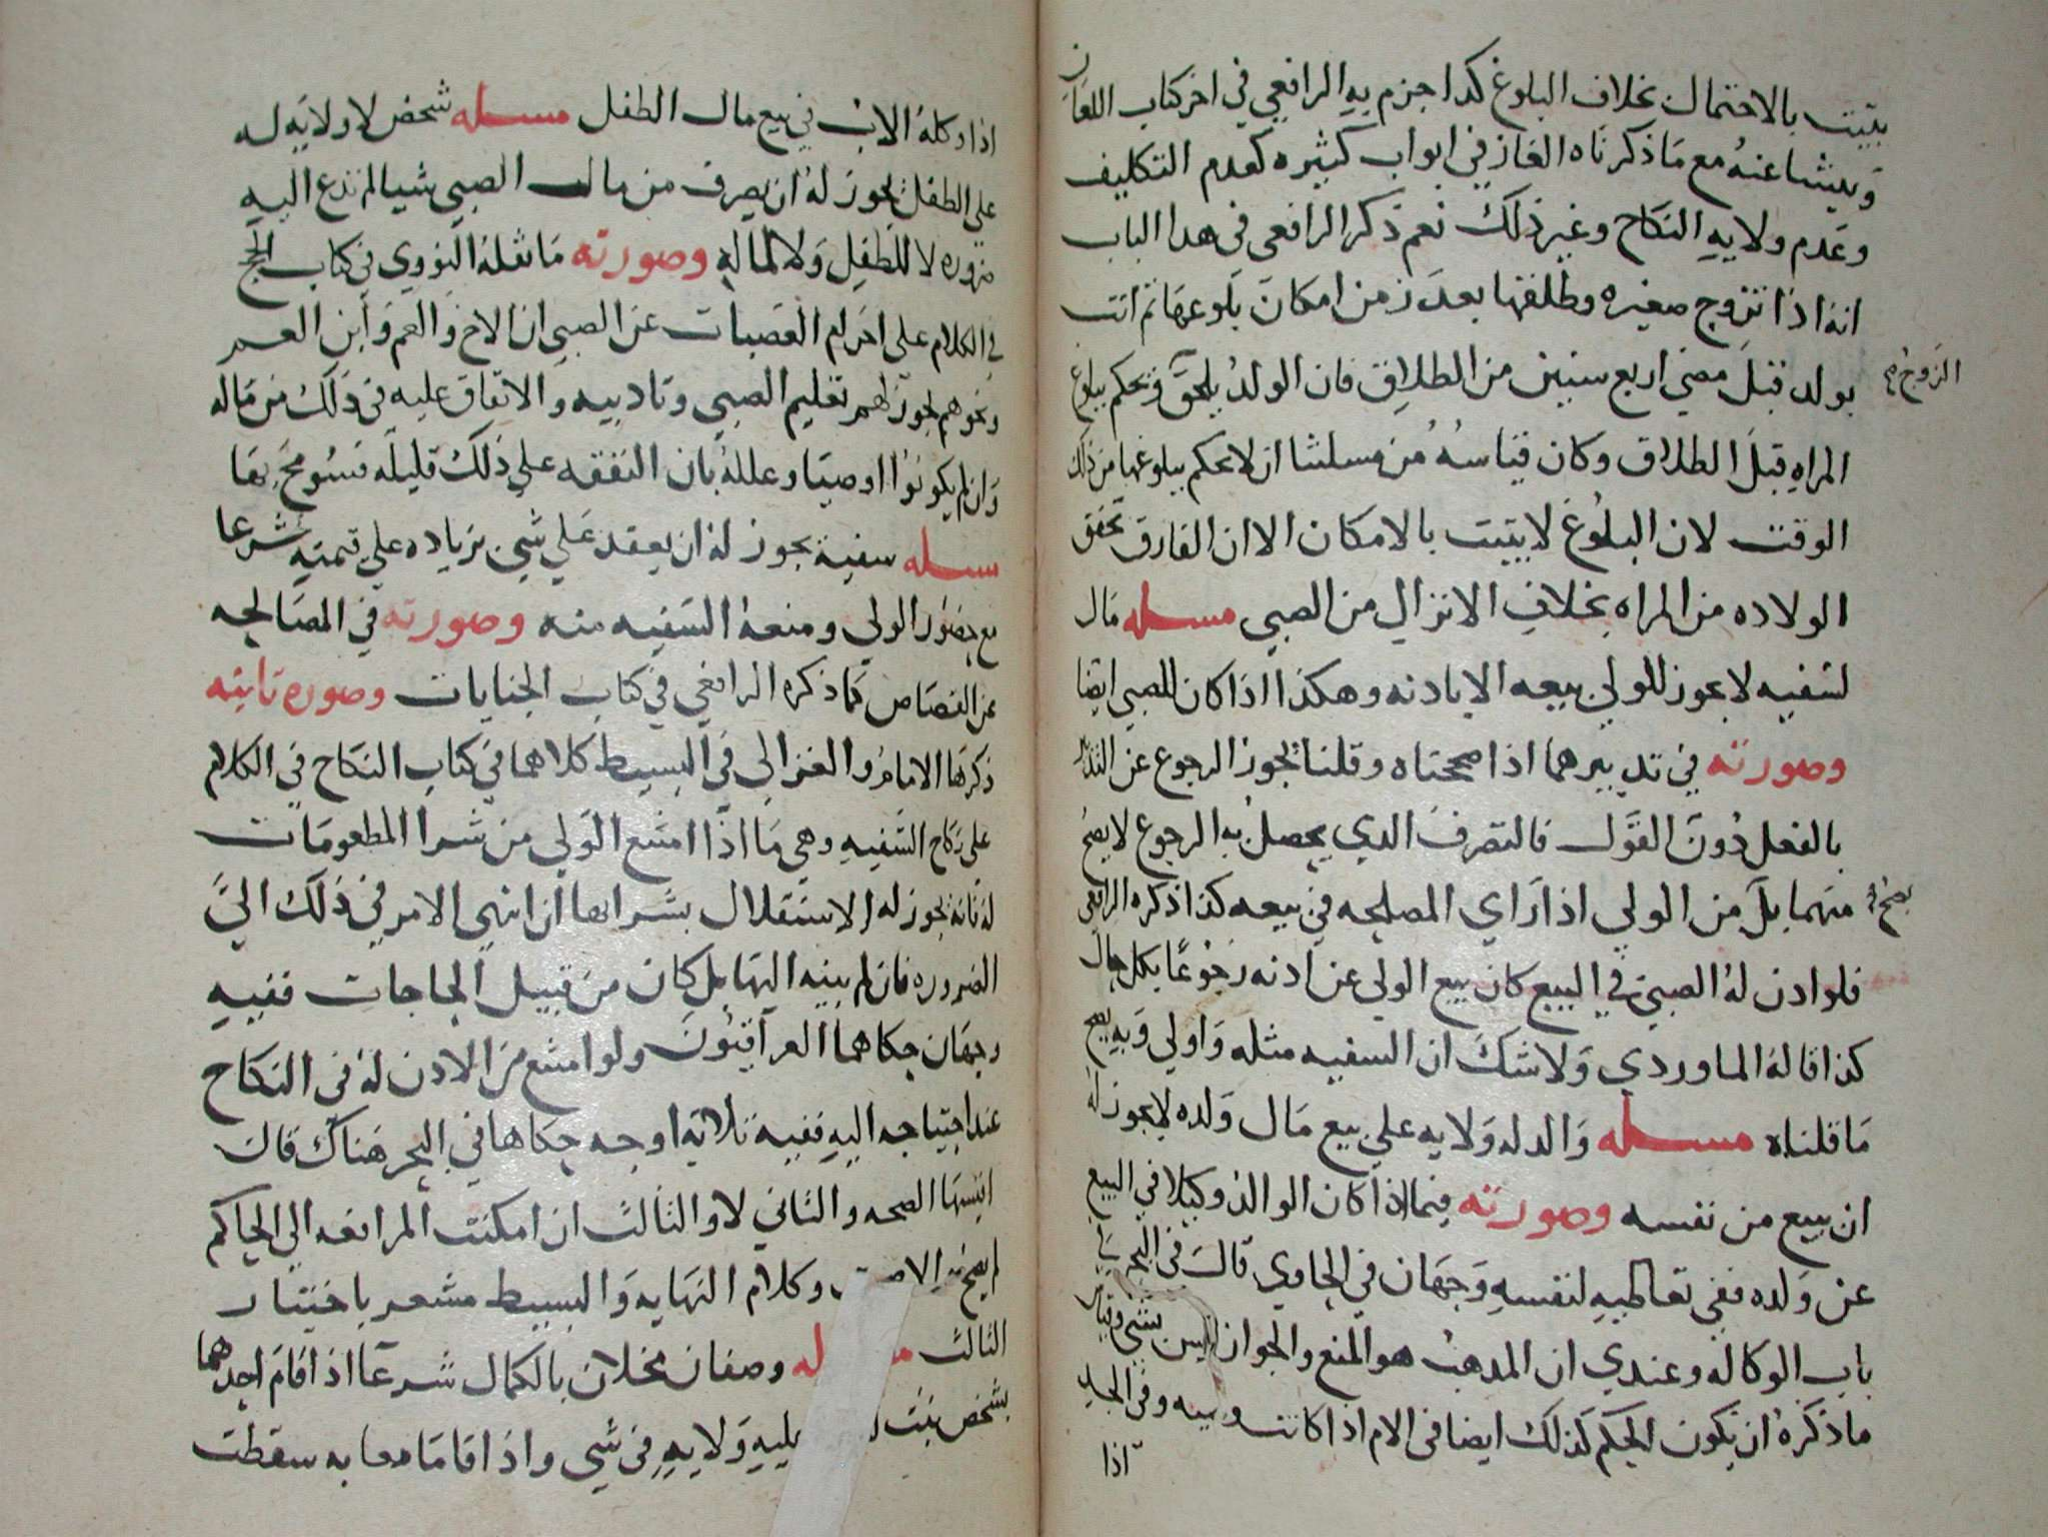 يثبت بالاحتمال بخلاف البلوغ كذا جزم به الرافعي في اخر كتاب اللعان
وينشا عنه مع ما ذكرناه الغاز في ابواب كثيره كعدم التكليف
وعدم ولايه النكاح وغير ذلك نعم ذكر الرافعي في هدا الباب
انه اذا تزوج صغيره وطلقها بعد زمن امكان بلوغها ثم اتت
بولد قبل مضي اربع سنين من الطلاق فان الولد يلحق ويحكم ببلوغ
الزوج
المراه قبل الطلاق وكان قياسه من مسلتنا ان لا نحكم ببلوغها من ذلك
الوقت لان البلوغ لا يثبت بالامكان الا ان الفارق تحقق
الولاده من المراه بخلاف الانزال من الصبي مسله مال
لسفيه لا يجوز للولي بيعه الا باذنه وهكذا اذا كان للصبي ايضا
وصورته في تدبيرهما اذا صححناه وقلنا يجوز الرجوع عن التدبير
بالفعل دون القول فالتصرف الدي يحصل به الرجوع لا يصح
منهما بل من الولي اذا راي المصلحه في بيعه كذا ذكره الرافعي
يصح
فلو اذن له الصبي في البيع كان بيع الولي عن اذنه رجوعا بكل حال
كذا قاله الماوردي ولا شك ان السفيه مثله واولي وبه يصح
ما قلناه مسله والد له ولايه علي بيع مال ولده لا يجوز له
ان يبيع من نفسه وصورته فيما اذا كان الوالد وكيلا في البيع
عن ولده ففي تعاطيه لنفسه وجهان في الحاوي قال في البحر
باب الوكاله وعندي ان المدهب هو المنع والجواز ليس بشي وقياس
ما ذكره ان يكون الحكم كذلك ايضا في الام اذا كانت وصيه وفي الجد
اذا
اذا وكله الاب في بيع مال الطفل مسله شخص لا ولايه له
علي الطفل يجوز له ان يصرف من مال الصبي شيا لم تدع اليه
ضروره لا للطفل ولا لماله وصورته ما نقله النووي في كتاب الحج
في الكلام علي احرام العصبات عن الصبي ان الاخ والعم وابن العم
ونحوهم يجوز لهم تعليم الصبي وتاديبه والانفاق عليه في ذلك من ماله
وان لم يكونوا اوصيا وعلله بان النفقه علي ذلك قليله فسومح بها
مسله سفيه يجوز له ان يعقد علي شي بزياده علي قيمته شرعا
مع حضور الولي ومنعه السفيه منه وصورته في المصالحه
عن القصاص كما ذكره الرافعي في كتاب الجنايات وصوره ثانيه
ذكرها الامام والغزالي في البسيط كلاهما في كتاب النكاح في الكلام
علي نكاح السفيه وهي ما اذا امتنع الولي من شرا المطعومات
له فانه يجوز له الاستقلال بشرايها ان انتهي الامر في ذلك الي
الضروره فان لم ينته اليها بل كان من قبيل الحاجات ففيه
وجهان حكاهما العراقيون ولو امتنع من الاذن له في النكاح
عند احتياجه اليه ففيه ثلاثه اوجه حكاها في البحر هناك قال
اقيسها الصحه والثاني لا والثالث ان امكنت المرافعه الي الحاكم
لم يصح وكلام النهايه والبسيط مشعر باختيار
الثالث وصفان مخلان بالكمال شرعا اذا قام احدهما
بشخص عليه ولايه في شي واذا قاما معا به سقطت